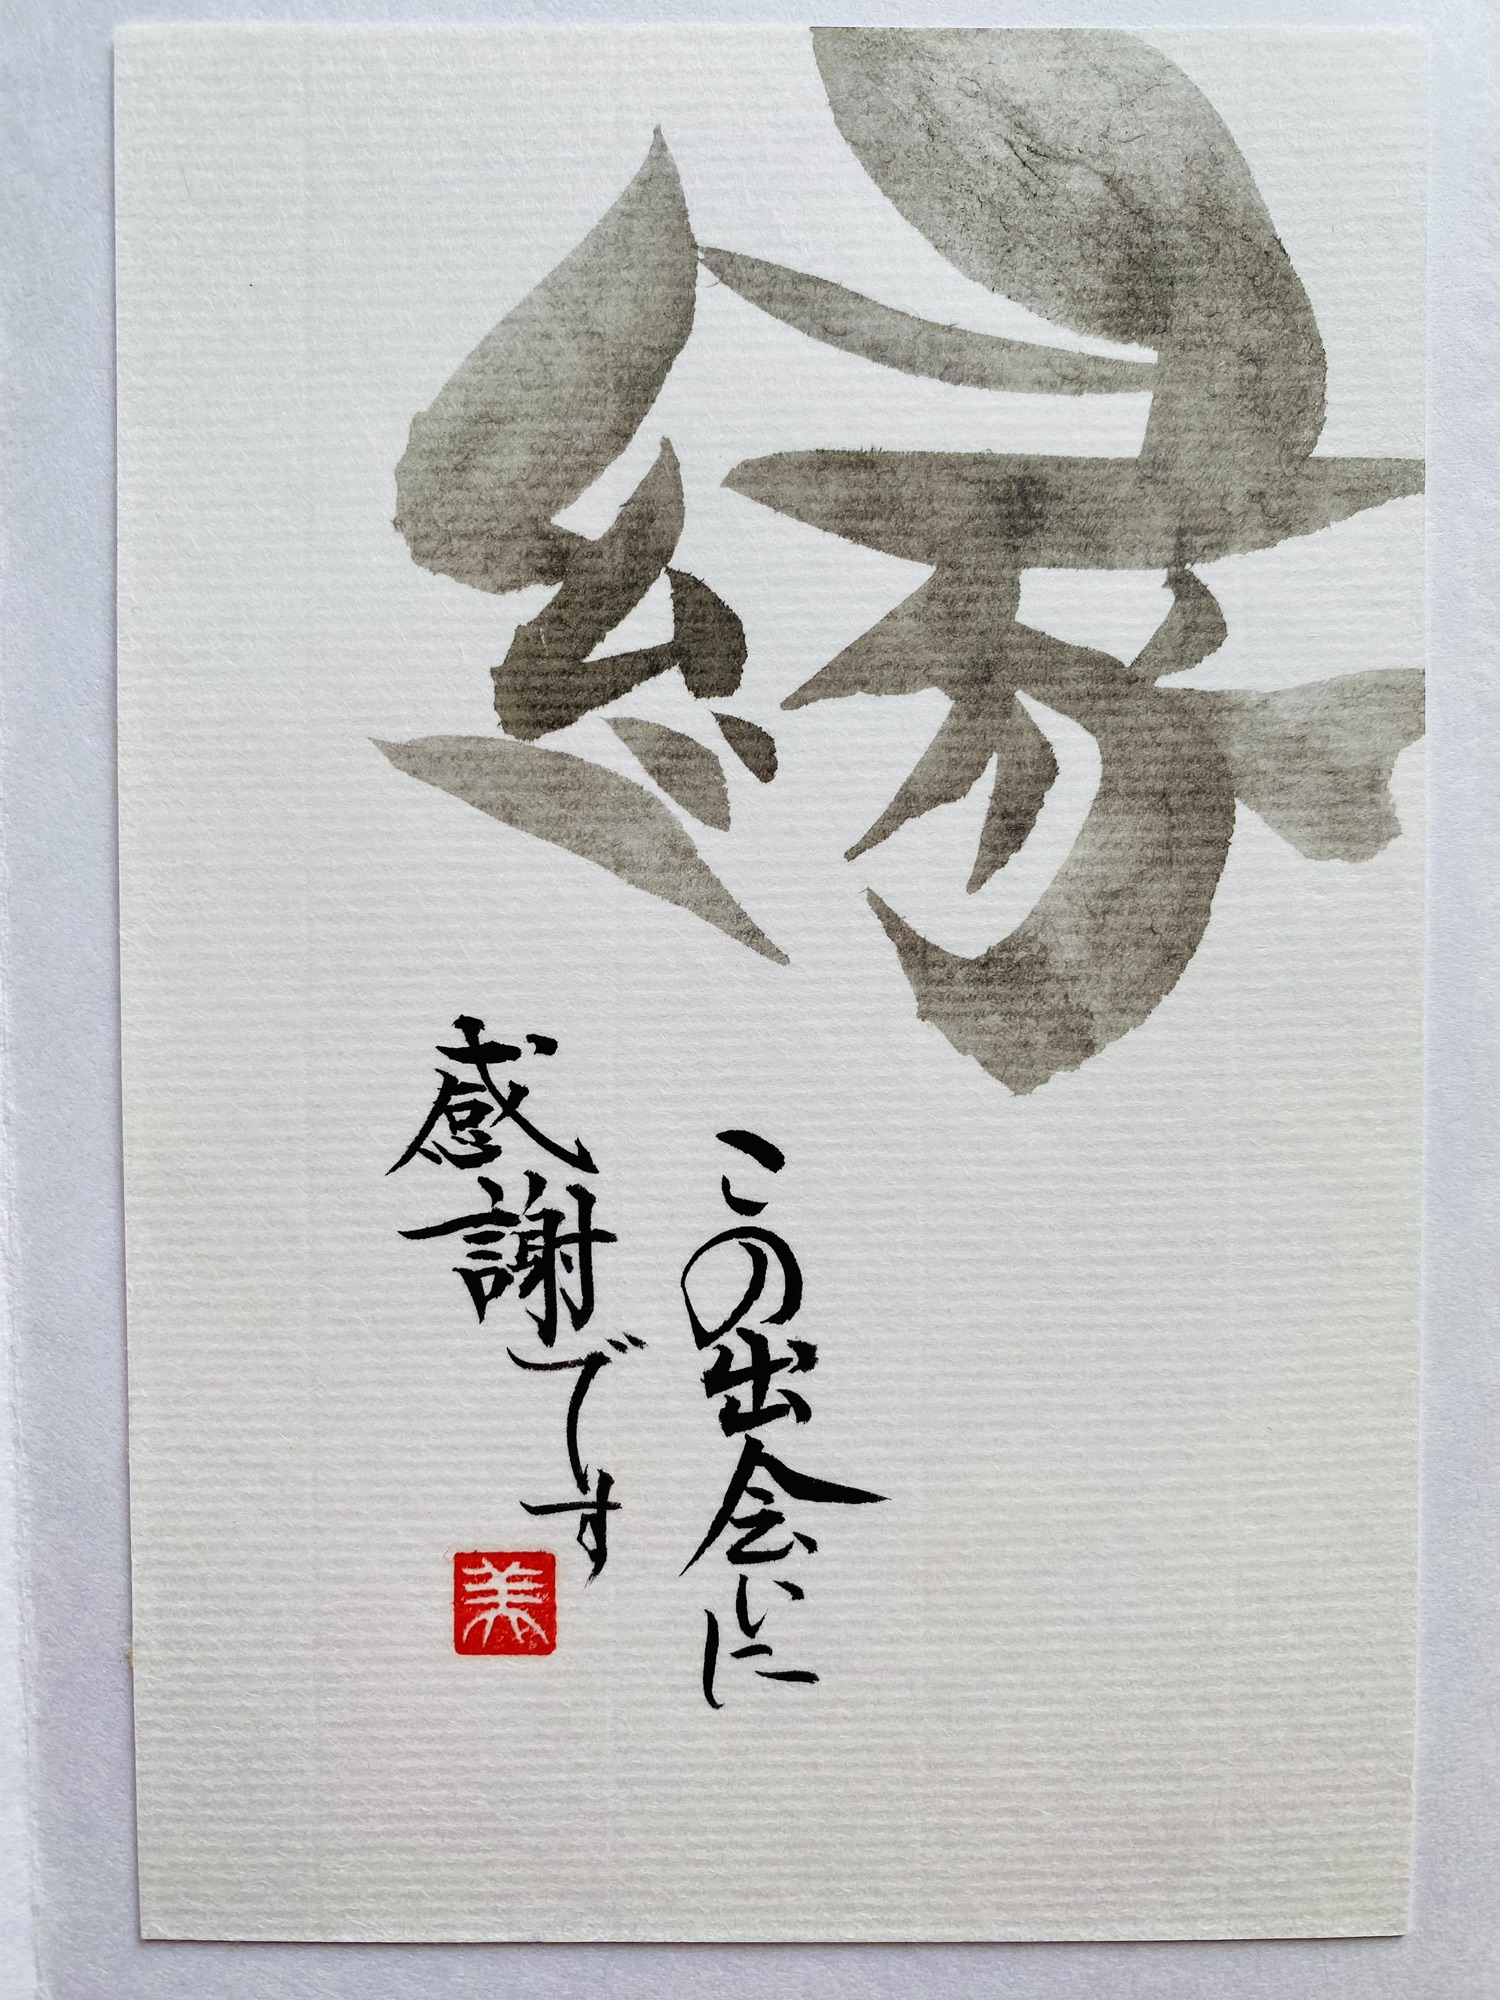 縁
この出会いに
感謝です
美